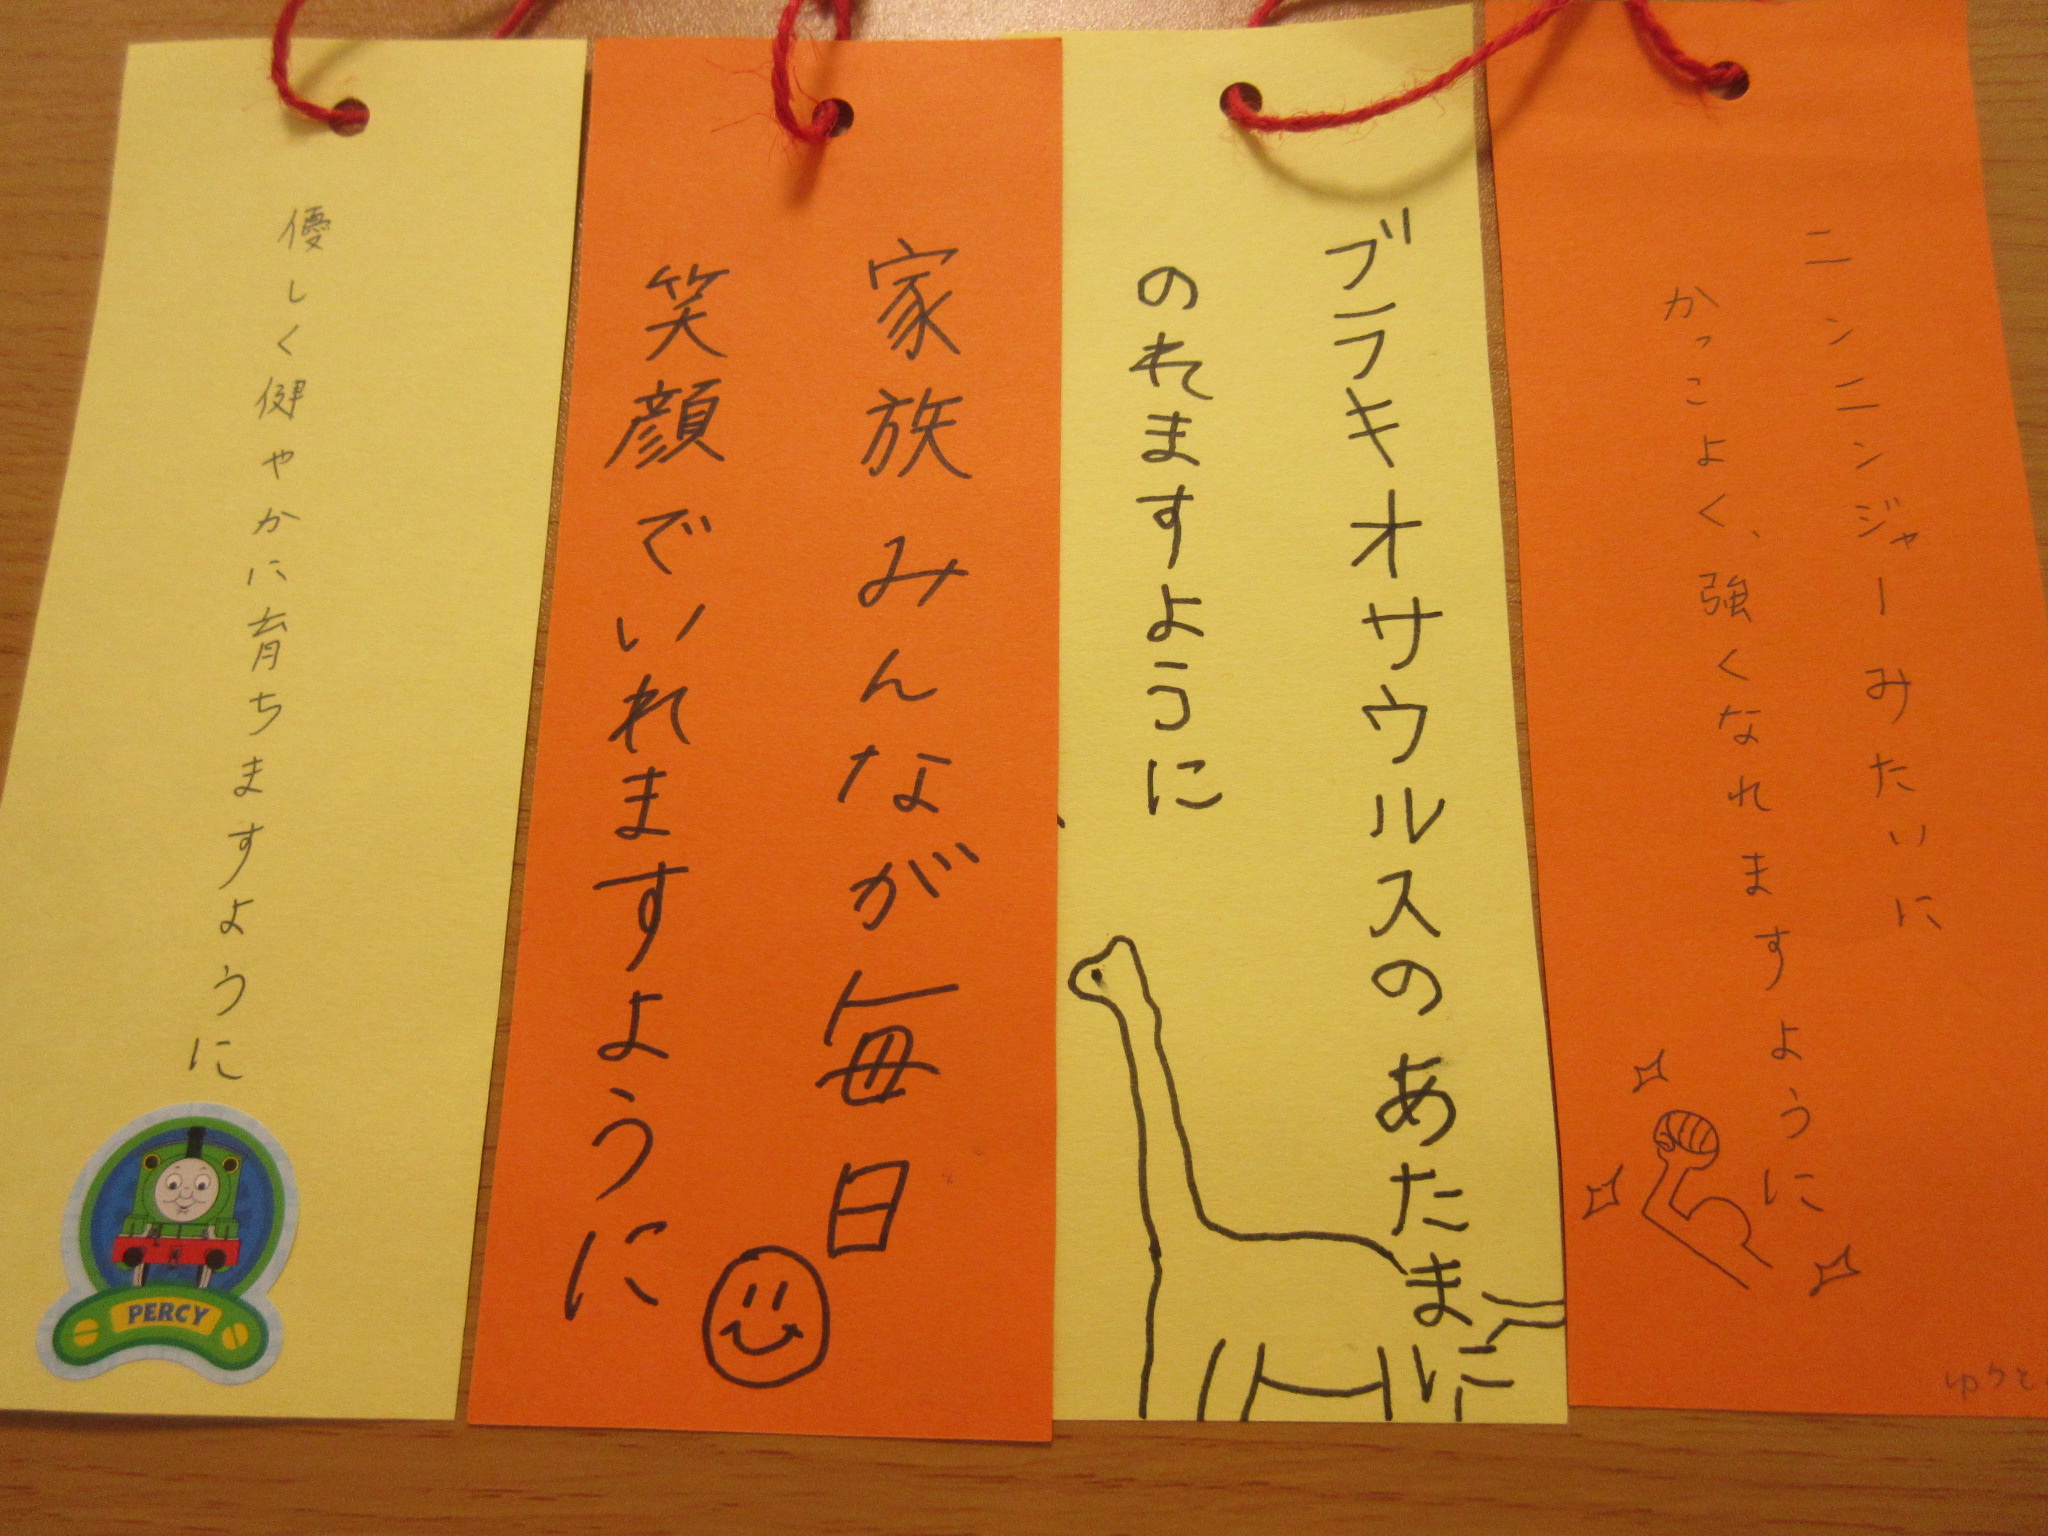 優しく健やかに育ちますように
PERCY
家族みんなが毎日
笑顔でいれますように
ブラキオサウルスのあたまに
のれますように
ニンニンジャーみたいに
かっこよく、強くなれますように
ゆうと